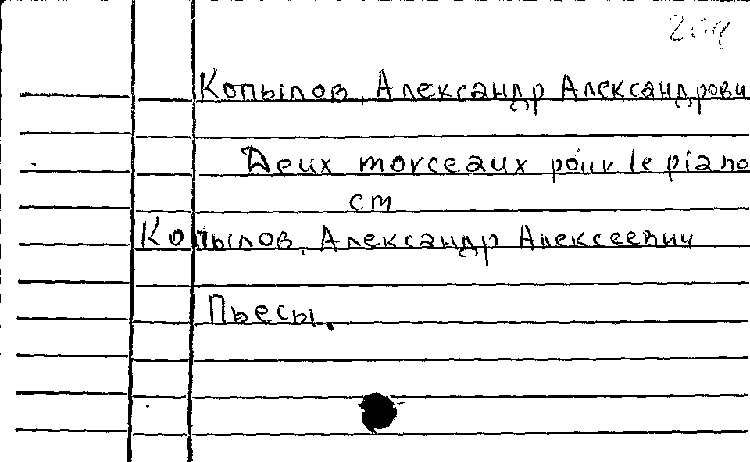 209
Копылов, Александр Александрови
Deux morceaux pour le piano
см
Копылов, Александр Алексеевич
Пьесы.